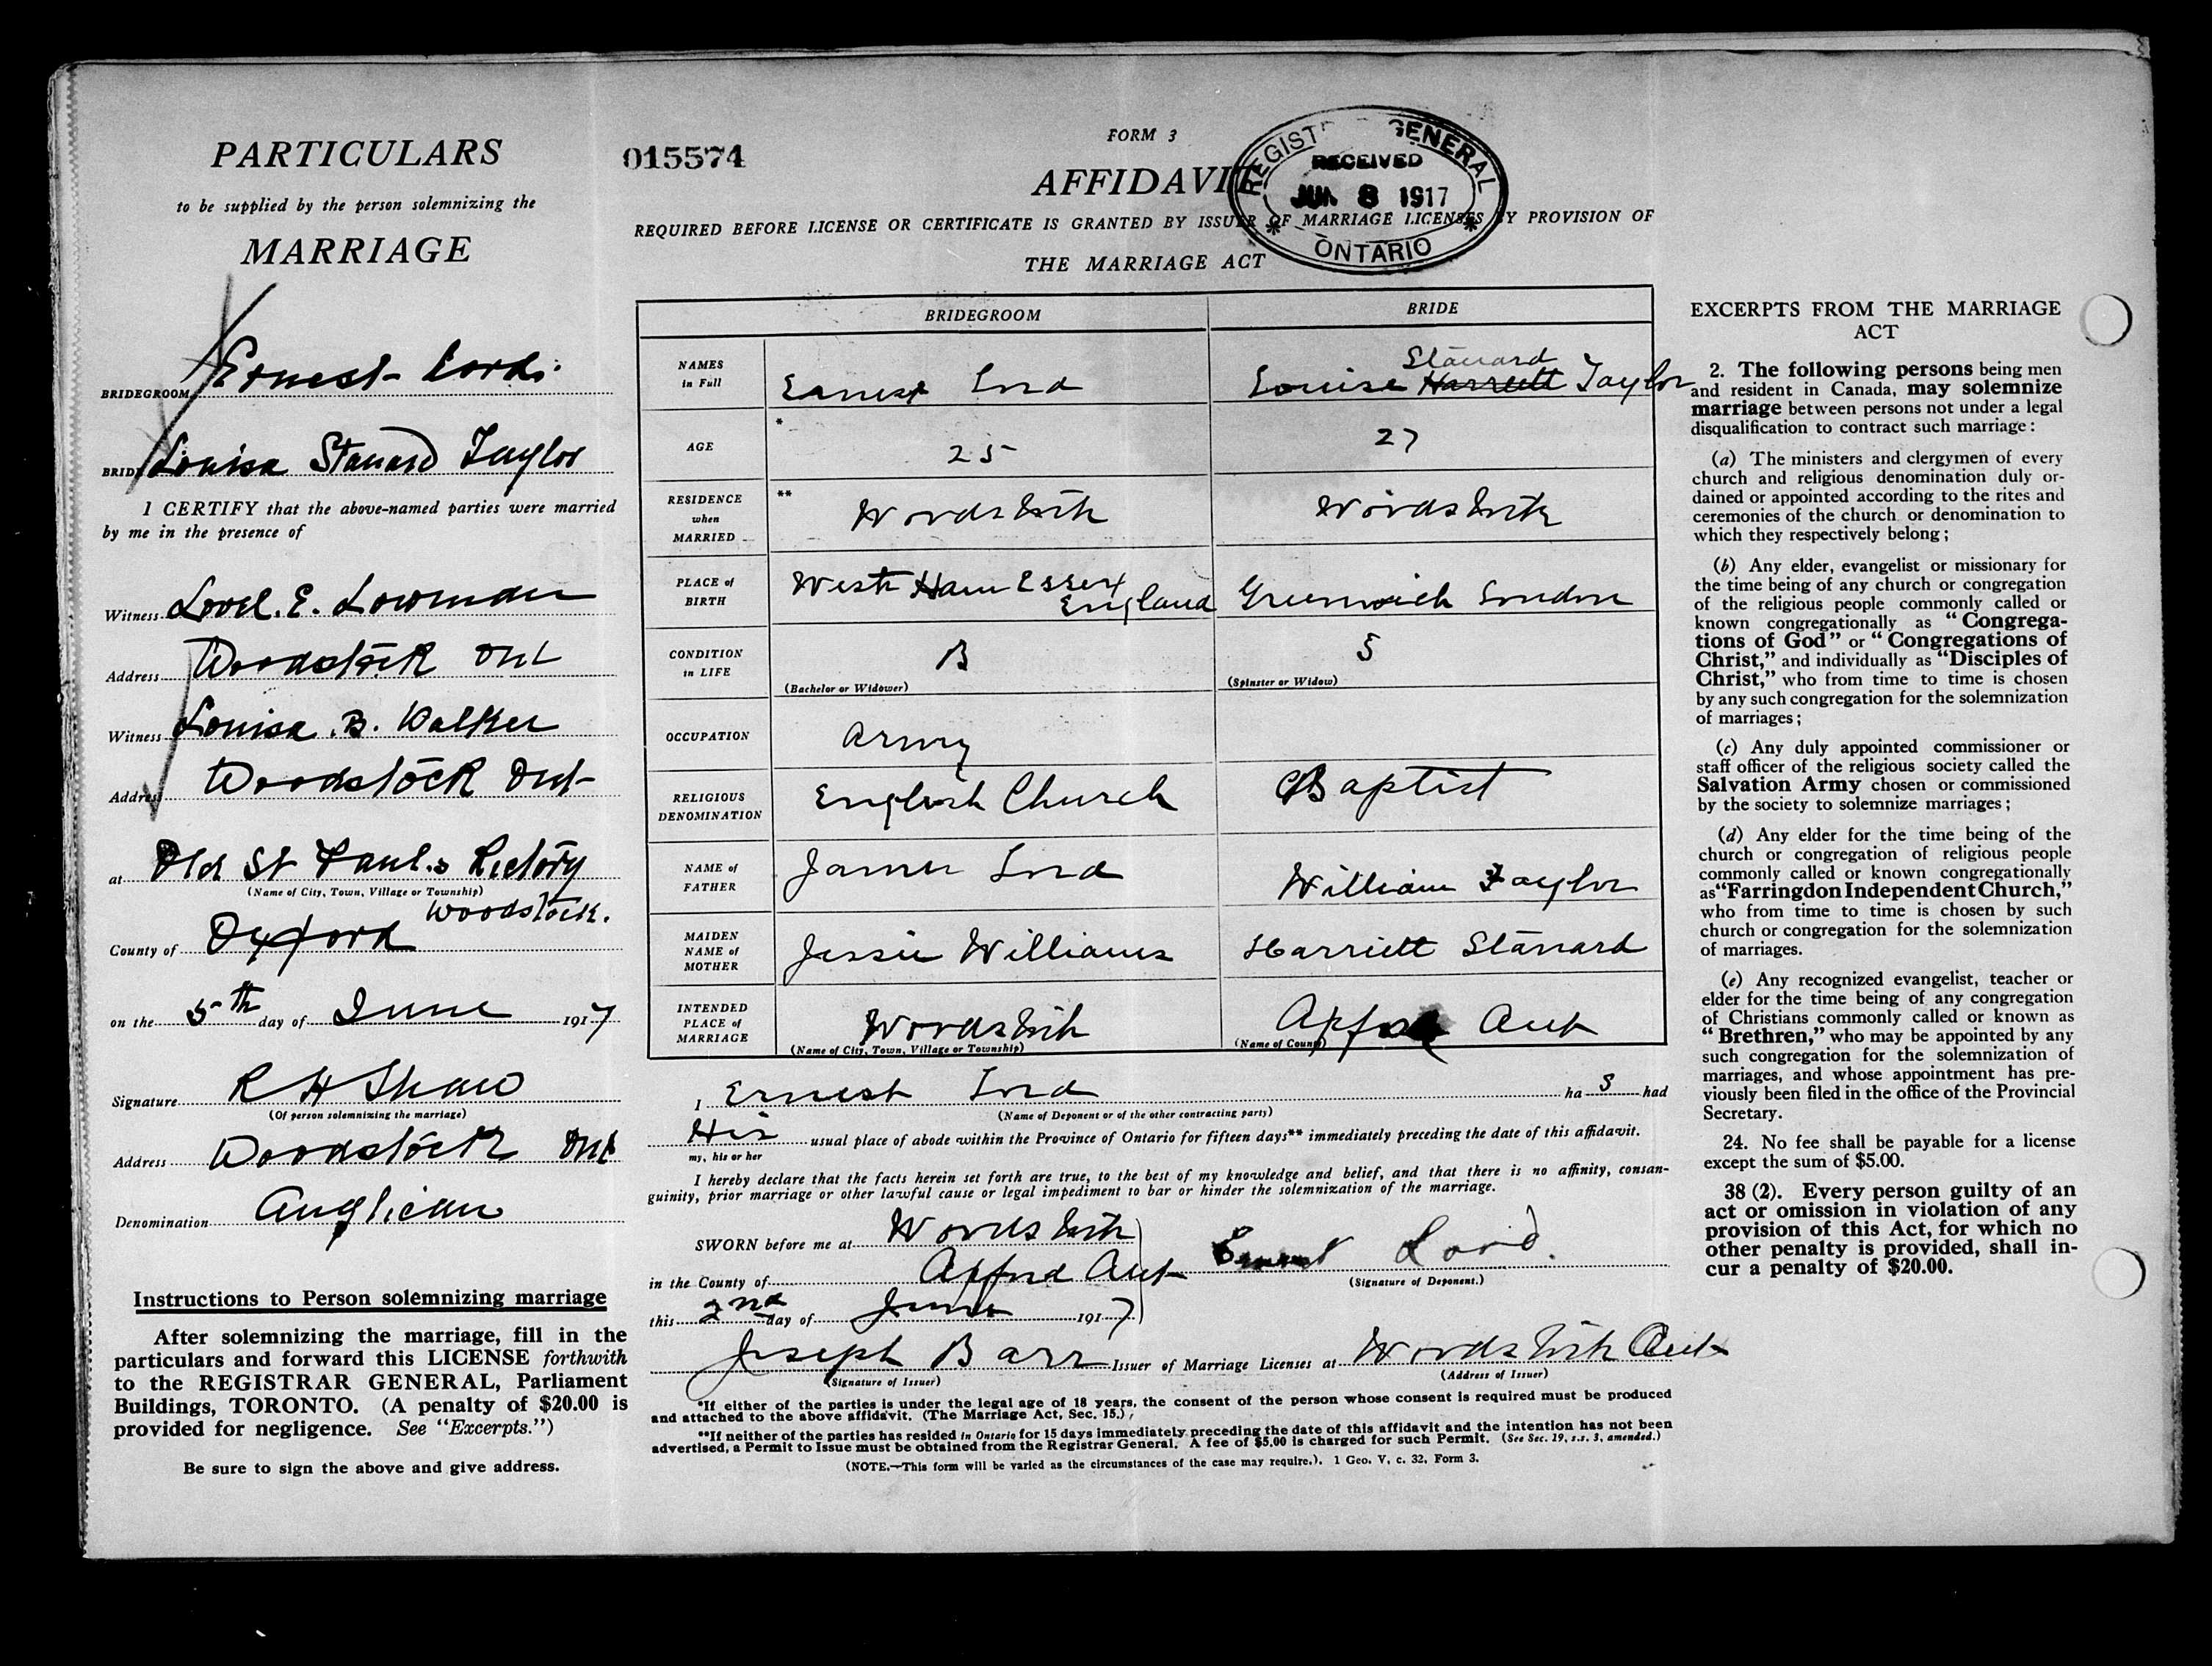 PARTICULARS
to be supplied by the person solemnizing the
MARRIAGE
BRIDEGROOM Ernest Lord
BRIDE Louisa Stanard Taylor
I CERTIFY that the above-named parties were married
by me in the presence of
Witness Lovel. E. Lowman
Address Woodstock Ont
Witness Louisa .B. Walker
Address Woodstock Ont
at Old St Paul's Rectory
(Name of City, Town, Village or Township)
Woodstock.
County of Oxford
on the 5th day of June 1917
Signature R H Shaw
(Of person solemnizing the marriage)
Address Woodstock Ont
Denomination Anglican
Instructions to Person solemnizing marriage
After solemnizing the marriage, fill in the
particulars and forward this LICENSE forthwith
to the REGISTRAR GENERAL, Parliament
Buildings, TORONTO. (A penalty of $20.00 is
provided for negligence. See "Excerpts.")
Be sure to sign the above and give address.
015574
FORM 3
AFFIDAVIT
REGISTRAR GENERAL
RECEIVED
JUN 8 1917
ONTARIO
REQUIRED BEFORE LICENSE OR CERTIFICATE IS GRANTED BY ISSUER OF MARRIAGE LICENSES BY PROVISION OF
THE MARRIAGE ACT
BRIDEGROOM BRIDE
NAMES in Full Earnest Lord Louise Harriett Stanard Taylor
AGE * 25 27
RESIDENCE when MARRIED ** Woodstock Woodstock
PLACE of BIRTH West Ham Essex England Greenwich London
CONDITION in LIFE B S
(Bachelor or Widower) (Spinster or Widow)
OCCUPATION Army
RELIGIOUS DENOMINATION English Church Baptist
NAME of FATHER James Lord William Taylor
MAIDEN NAME of MOTHER Jessie Williams Harriett Stanard
INTENDED PLACE of MARRIAGE Woodstock Oxford Ont
(Name of City, Town, Village or Township) (Name of County)
I Ernest Lord has had
(Name of Deponent or of the other contracting party)
His usual place of abode within the Province of Ontario for fifteen days** immediately preceding the date of this affidavit.
my, his or her
I hereby declare that the facts herein set forth are true, to the best of my knowledge and belief, and that there is no affinity, consan-
guinity, prior marriage or other lawful cause or legal impediment to bar or hinder the solemnization of the marriage.
SWORN before me at Woodstock
in the County of Oxford Ont Ernest Lord.
(Signature of Deponent.)
this 2nd day of June 1917
Joseph Barr Issuer of Marriage Licenses at Woodstock Ont
(Signature of Issuer) (Address of Issuer)
*If either of the parties is under the legal age of 18 years, the consent of the person whose consent is required must be produced
and attached to the above affidavit. (The Marriage Act, Sec. 15.)
**If neither of the parties has resided in Ontario for 15 days immediately preceding the date of this affidavit and the intention has not been
advertised, a Permit to Issue must be obtained from the Registrar General. A fee of $5.00 is charged for such Permit. (See Sec. 19, s.s. 3, amended.)
(NOTE.—This form will be varied as the circumstances of the case may require.). 1 Geo. V, c. 32, Form 3.
EXCERPTS FROM THE MARRIAGE
ACT
2. The following persons being men
and resident in Canada, may solemnize
marriage between persons not under a legal
disqualification to contract such marriage:
(a) The ministers and clergymen of every
church and religious denomination duly or-
dained or appointed according to the rites and
ceremonies of the church or denomination to
which they respectively belong;
(b) Any elder, evangelist or missionary for
the time being of any church or congregation
of the religious people commonly called or
known congregationally as "Congrega-
tions of God" or "Congregations of
Christ," and individually as "Disciples of
Christ," who from time to time is chosen
by any such congregation for the solemnization
of marriages;
(c) Any duly appointed commissioner or
staff officer of the religious society called the
Salvation Army chosen or commissioned
by the society to solemnize marriages;
(d) Any elder for the time being of the
church or congregation of religious people
commonly called or known congregationally
as "Farringdon Independent Church,"
who from time to time is chosen by such
church or congregation for the solemnization
of marriages.
(e) Any recognized evangelist, teacher or
elder for the time being of any congregation
of Christians commonly called or known as
"Brethren," who may be appointed by any
such congregation for the solemnization of
marriages, and whose appointment has pre-
viously been filed in the office of the Provincial
Secretary.
24. No fee shall be payable for a license
except the sum of $5.00.
38 (2). Every person guilty of an
act or omission in violation of any
provision of this Act, for which no
other penalty is provided, shall in-
cur a penalty of $20.00.